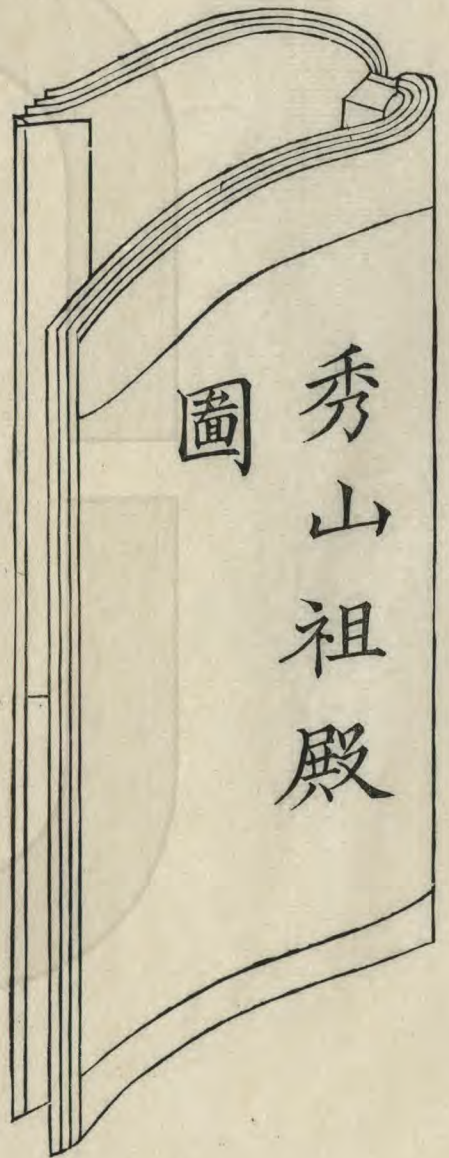 秀山祖殿
圖